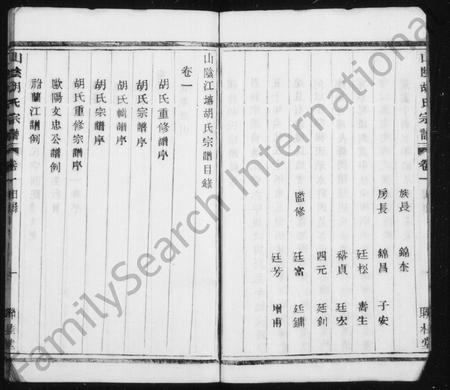 山陰胡氏宗譜 卷一
族長 錦奎
房長 錦昌 子安
廷松 壽生
裕貞 廷宏
監修 四元 廷釗
廷富 廷鏞
廷芳 增甫
山陰江墻胡氏宗譜目錄
卷一
胡氏重修譜序
胡氏譜序
胡氏輯譜序
胡氏宗譜序
胡氏重修宗譜序
歐陽文忠公譜例
蘭江譜例
山陰胡氏宗譜 卷一 目錄 一
FamilySearch International